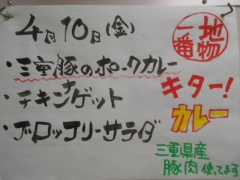 4月10日(金)
・三重豚のポークカレー
・チキンナゲット
・ブロッコリーサラダ
地物一番
キター!
カレー
三重県産
豚肉使ってます